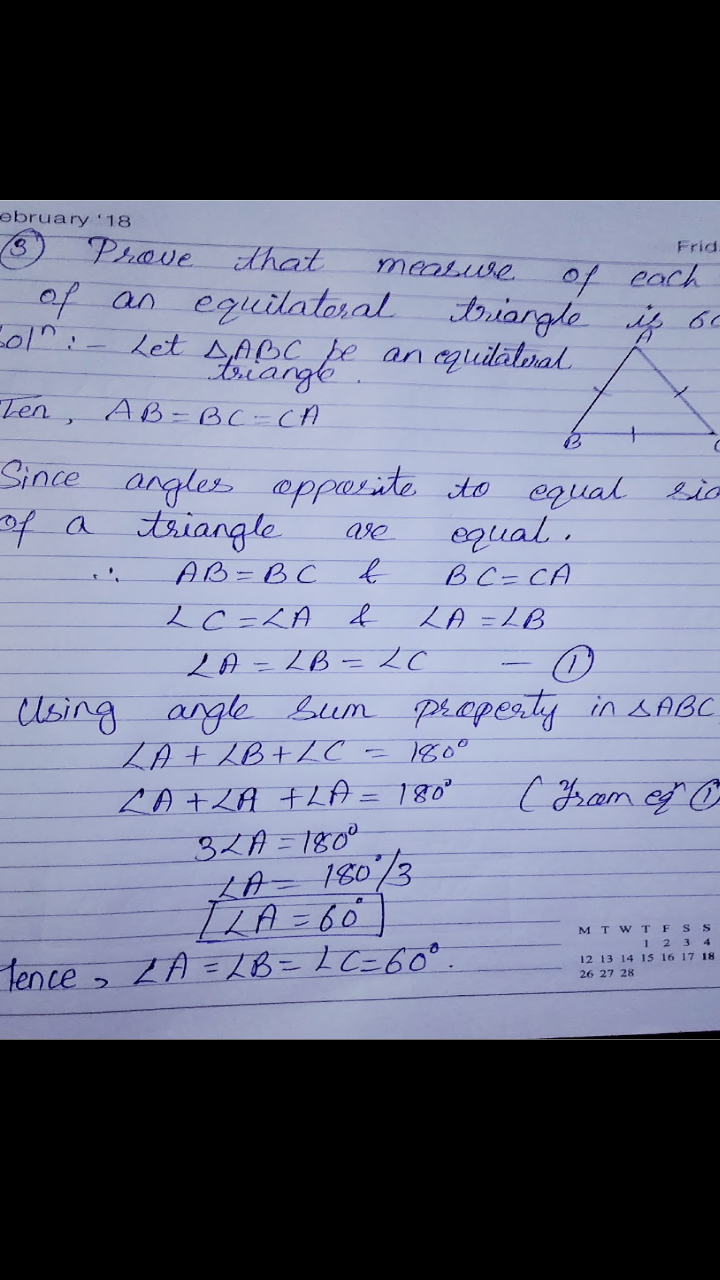 ebruary '18
Frid
③ Prove that measure of each
of an equilateral triangle is 60
Soln :- Let △ABC be an equilateral
triangle.
A
Ten, AB = BC = CA
B
C
Since angles opposite to equal sid
of a triangle are equal.
∴ AB = BC & BC = CA
∠C = ∠A & ∠A = ∠B
∠A = ∠B = ∠C — ①
Using angle sum property in △ABC
∠A + ∠B + ∠C = 180°
∠A + ∠A + ∠A = 180° (From eqn ①
3∠A = 180°
∠A = 180°/3
[∠A = 60°]
Hence, ∠A = ∠B = ∠C = 60°.
M T W T F S S
1 2 3 4
12 13 14 15 16 17 18
26 27 28